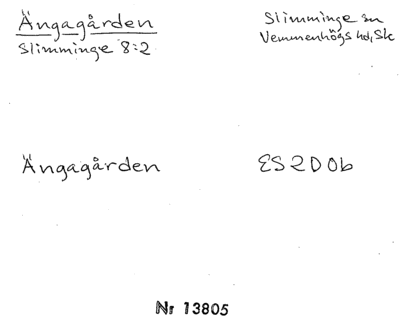 Ängagården
Slimminge 8:2
Slimminge sn
Vemmenhögs hd, Sk
Ängagården
ES2D0b
Nr 13805